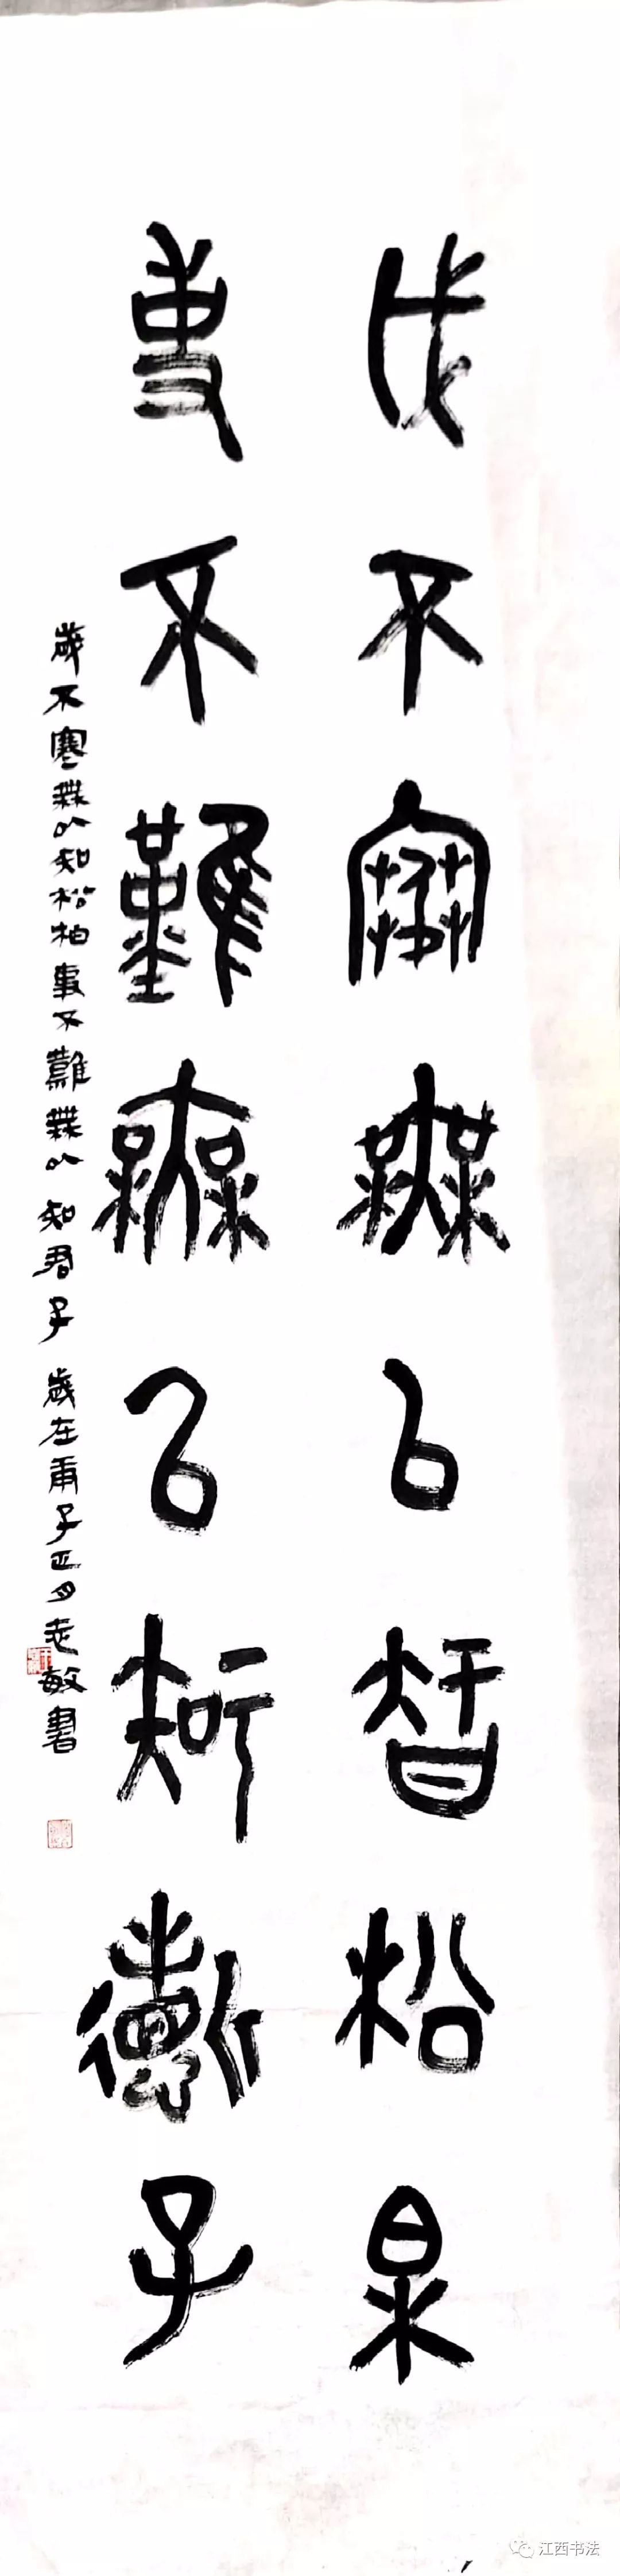 歲不寒無以知松柏
事不難無以知君子
歲不寒無以知松柏事不難無以知君子 歲在庚子正月志敏書
江西书法